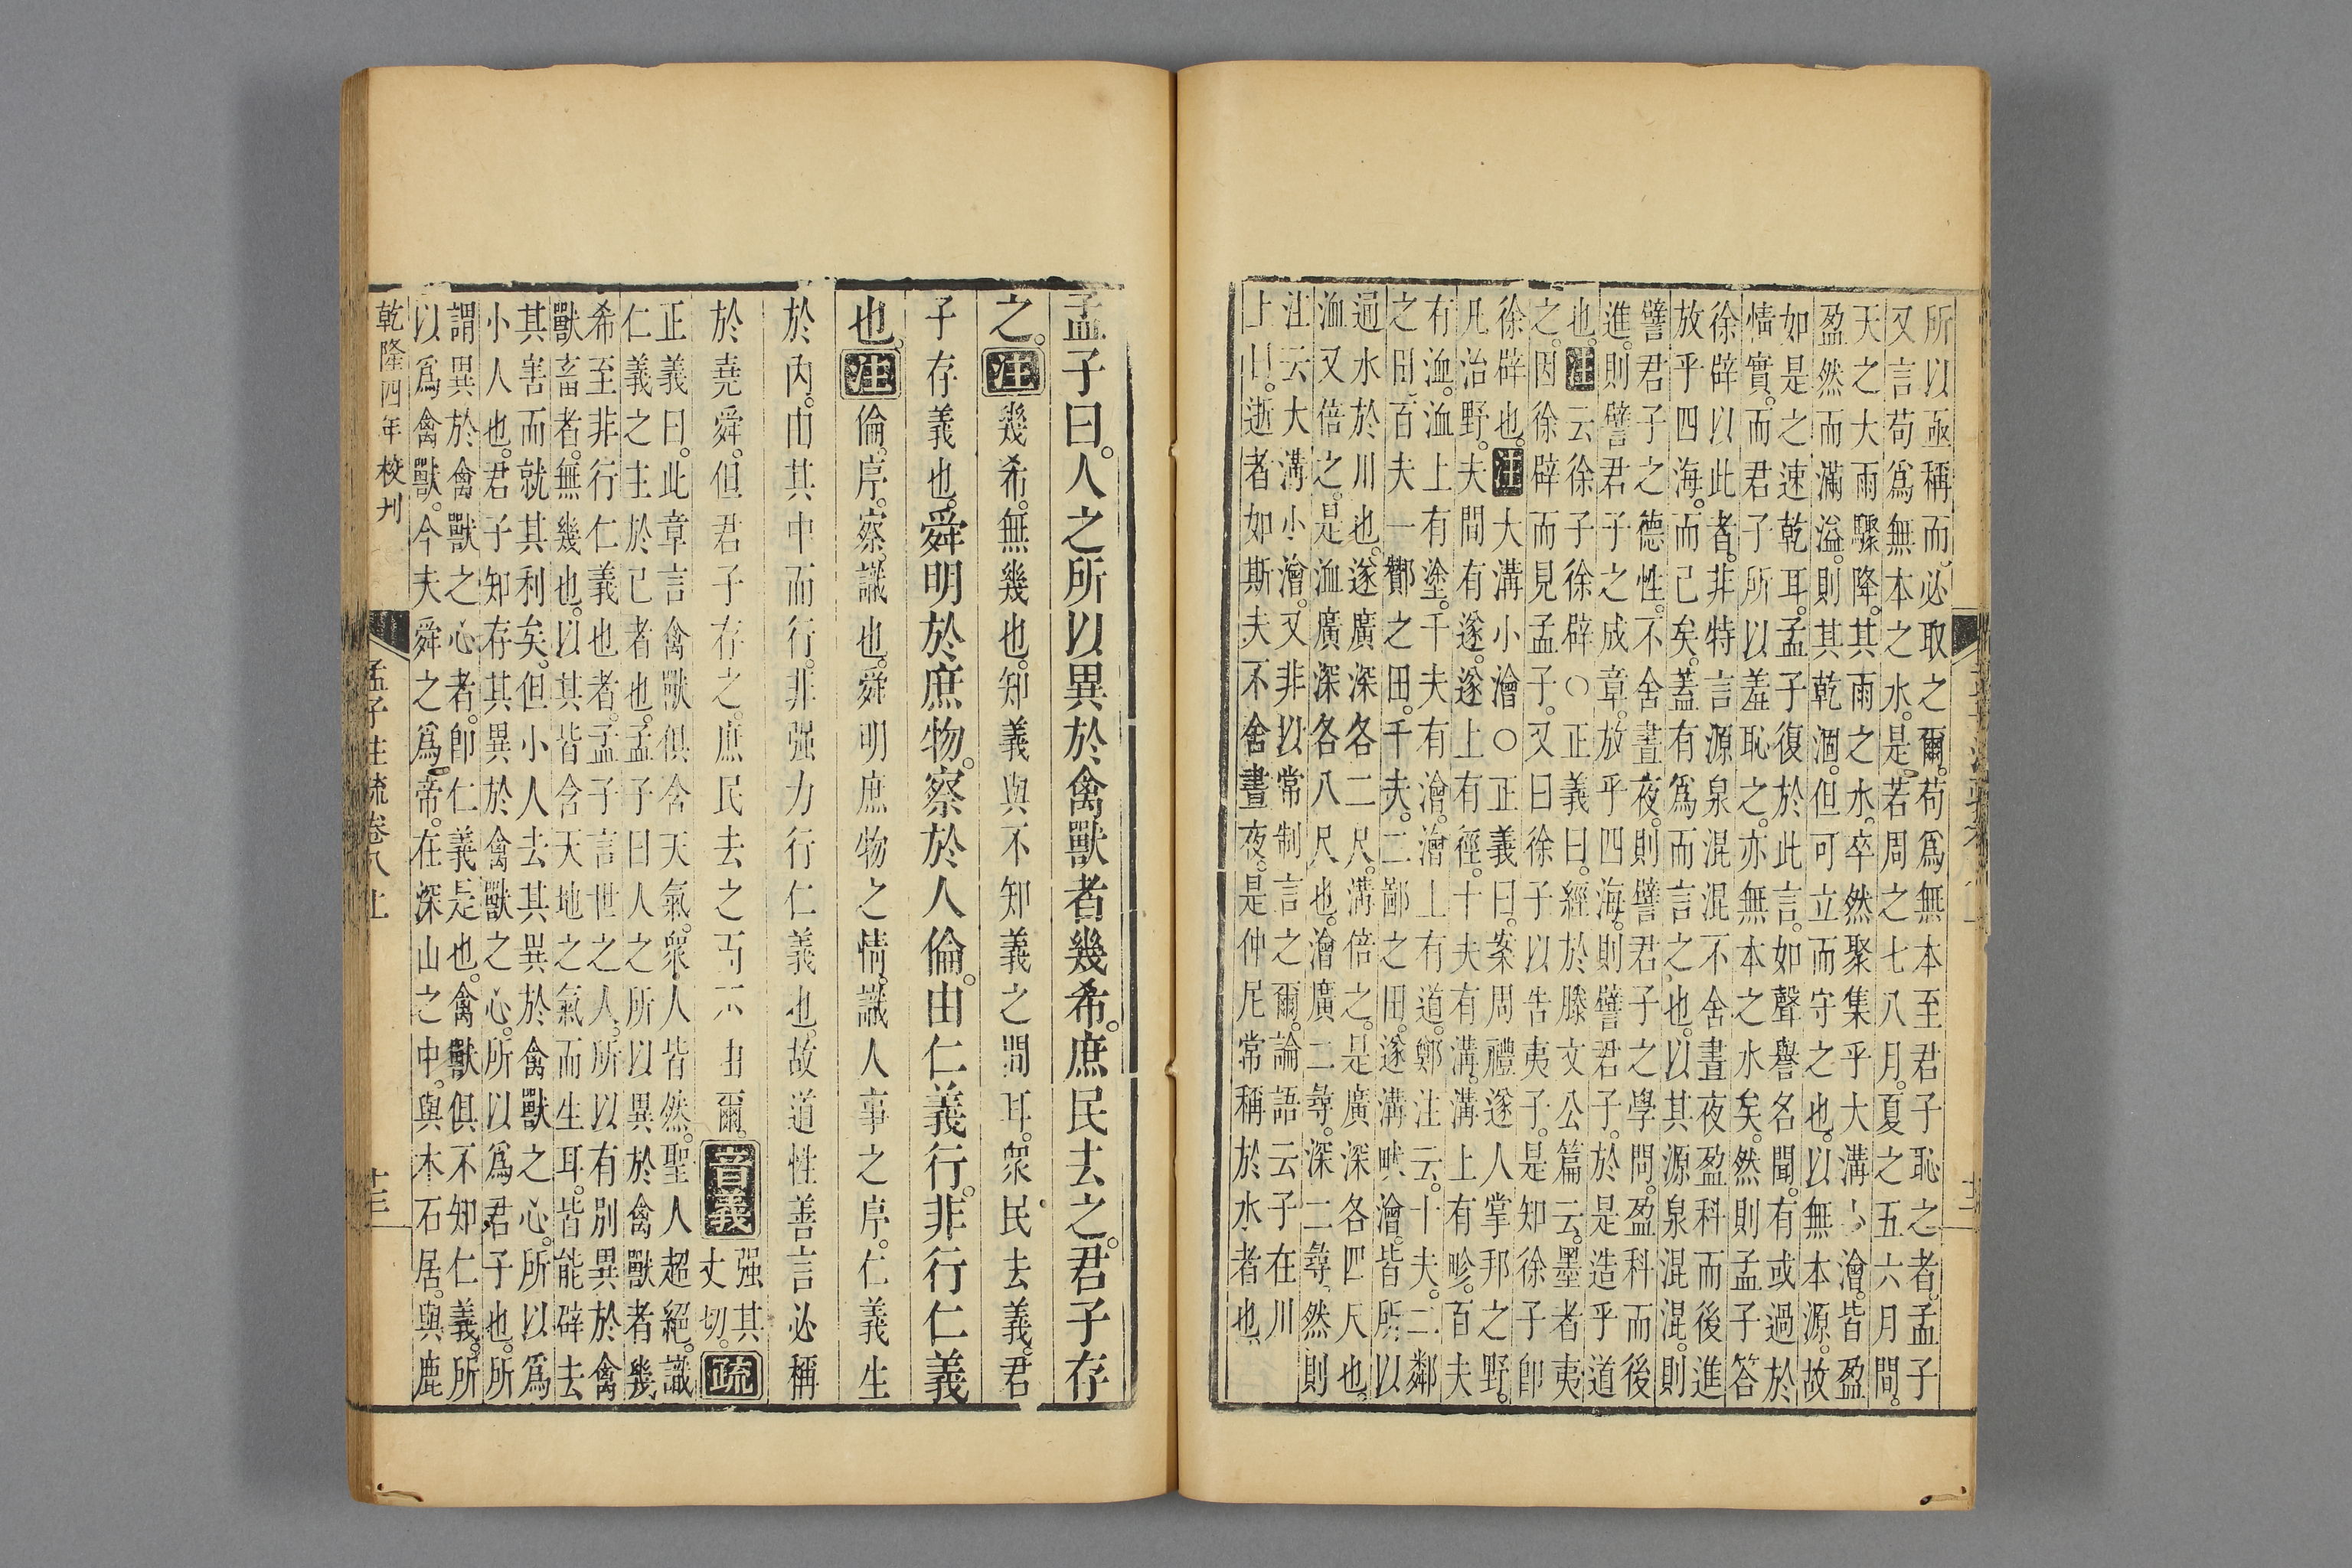 所以亟稱而必取之爾苟爲無本至君子恥之者孟子
又言苟爲無本之水是若周之七八月夏之五六月間
天之大雨驟降其雨之水卒然聚集乎大溝小澮皆盈
盈然而滿溢則其乾涸但可立而守之也以無本源故
如是之速乾耳孟子復於此言如聲譽名聞有或過於
情實而君子所以羞恥之亦無本之水矣然則孟子答
徐辟以此者非特言源泉混混不舍晝夜盈科而後進
放乎四海而已矣蓋有爲而言之也以其源泉混混則
譬君子之德性不舍晝夜則譬君子之學問盈科而後
進則譬君子之成章放乎四海則譬君子於是造乎道
也注云徐子徐辟○正義曰經於滕文公篇云墨者夷
之因徐辟而見孟子又曰徐子以告夷子是知徐子卽
徐辟也注大溝小澮○正義曰案周禮遂人掌邦之野
凡治野夫間有遂遂上有徑十夫有溝溝上有畛百夫
有洫洫上有塗千夫有澮澮上有道鄭注云十夫二鄰
之田百夫一酇之田千夫二鄙之田遂溝畎澮皆所以
通水於川也遂廣深各二尺溝倍之是廣深各四尺也
洫又倍之是洫廣深各八尺也澮廣二尋深二尋然則
注云大溝小澮又非以常制言之爾論語云子在川
上曰逝者如斯夫不舍晝夜是仲尼常稱於水者也
孟子曰人之所以異於禽獸者幾希庶民去之君子存
之注幾希無幾也知義與不知義之間耳衆民去義君
子存義也舜明於庶物察於人倫由仁義行非行仁義
也注倫序察識也舜明庶物之情識人事之序仁義生
於內由其中而行非强力行仁義也故道性善言必稱
於堯舜但君子存之庶民去之而不由爾音義强其丈切疏
正義曰此章言禽獸俱含天氣衆人皆然聖人超絕識
仁義之主於已者也孟子曰人之所以異於禽獸者幾
希至非行仁義也者孟子言世之人所以有別異於禽
獸畜者無幾也以其皆含天地之氣而生耳皆能辟去
其害而就其利矣但小人去其異於禽獸之心所以爲
小人也君子知存其異於禽獸之心所以爲君子也所
謂異於禽獸之心者卽仁義是也禽獸俱不知仁義所
以爲禽獸今夫舜之爲帝在深山之中與木石居與鹿
乾隆四年校刊
孟子注疏卷八上
十三